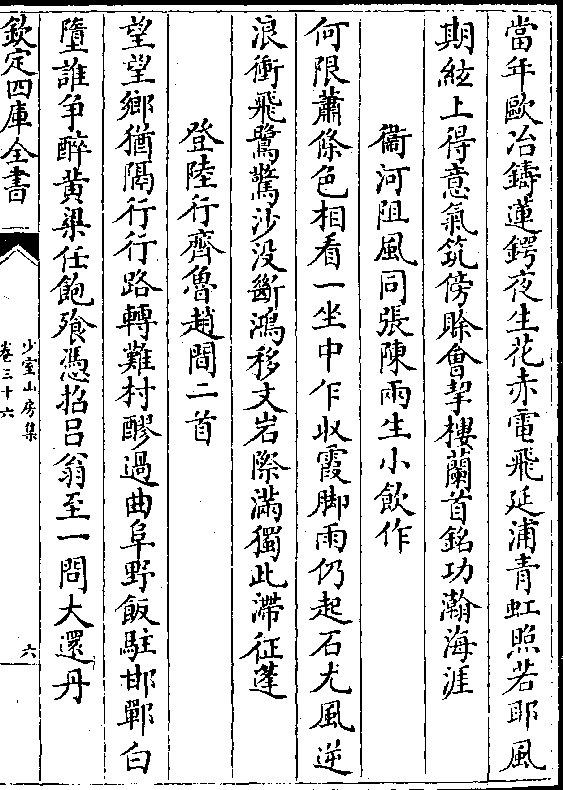 當年歐冶鑄蓮鍔夜生花赤電飛延浦青虹照若耶風
期絃上得意氣筑傍賖會挈樓蘭首銘功瀚海涯
衞河阻風同張陳兩生小飲作
何限蕭條色相看一坐中乍收霞脚雨仍起石尤風逆
浪衝飛鷺驚沙没斷鴻移文岩際滿獨此滯征蓬
登陸行齊魯趙間二首
望望鄉猶隔行行路轉難村醪過曲阜野飯駐邯鄲白
墮誰争醉黄粱任飽飱憑招吕翁至一問大還丹
欽定四庫全書
少室山房集
卷三十六
六